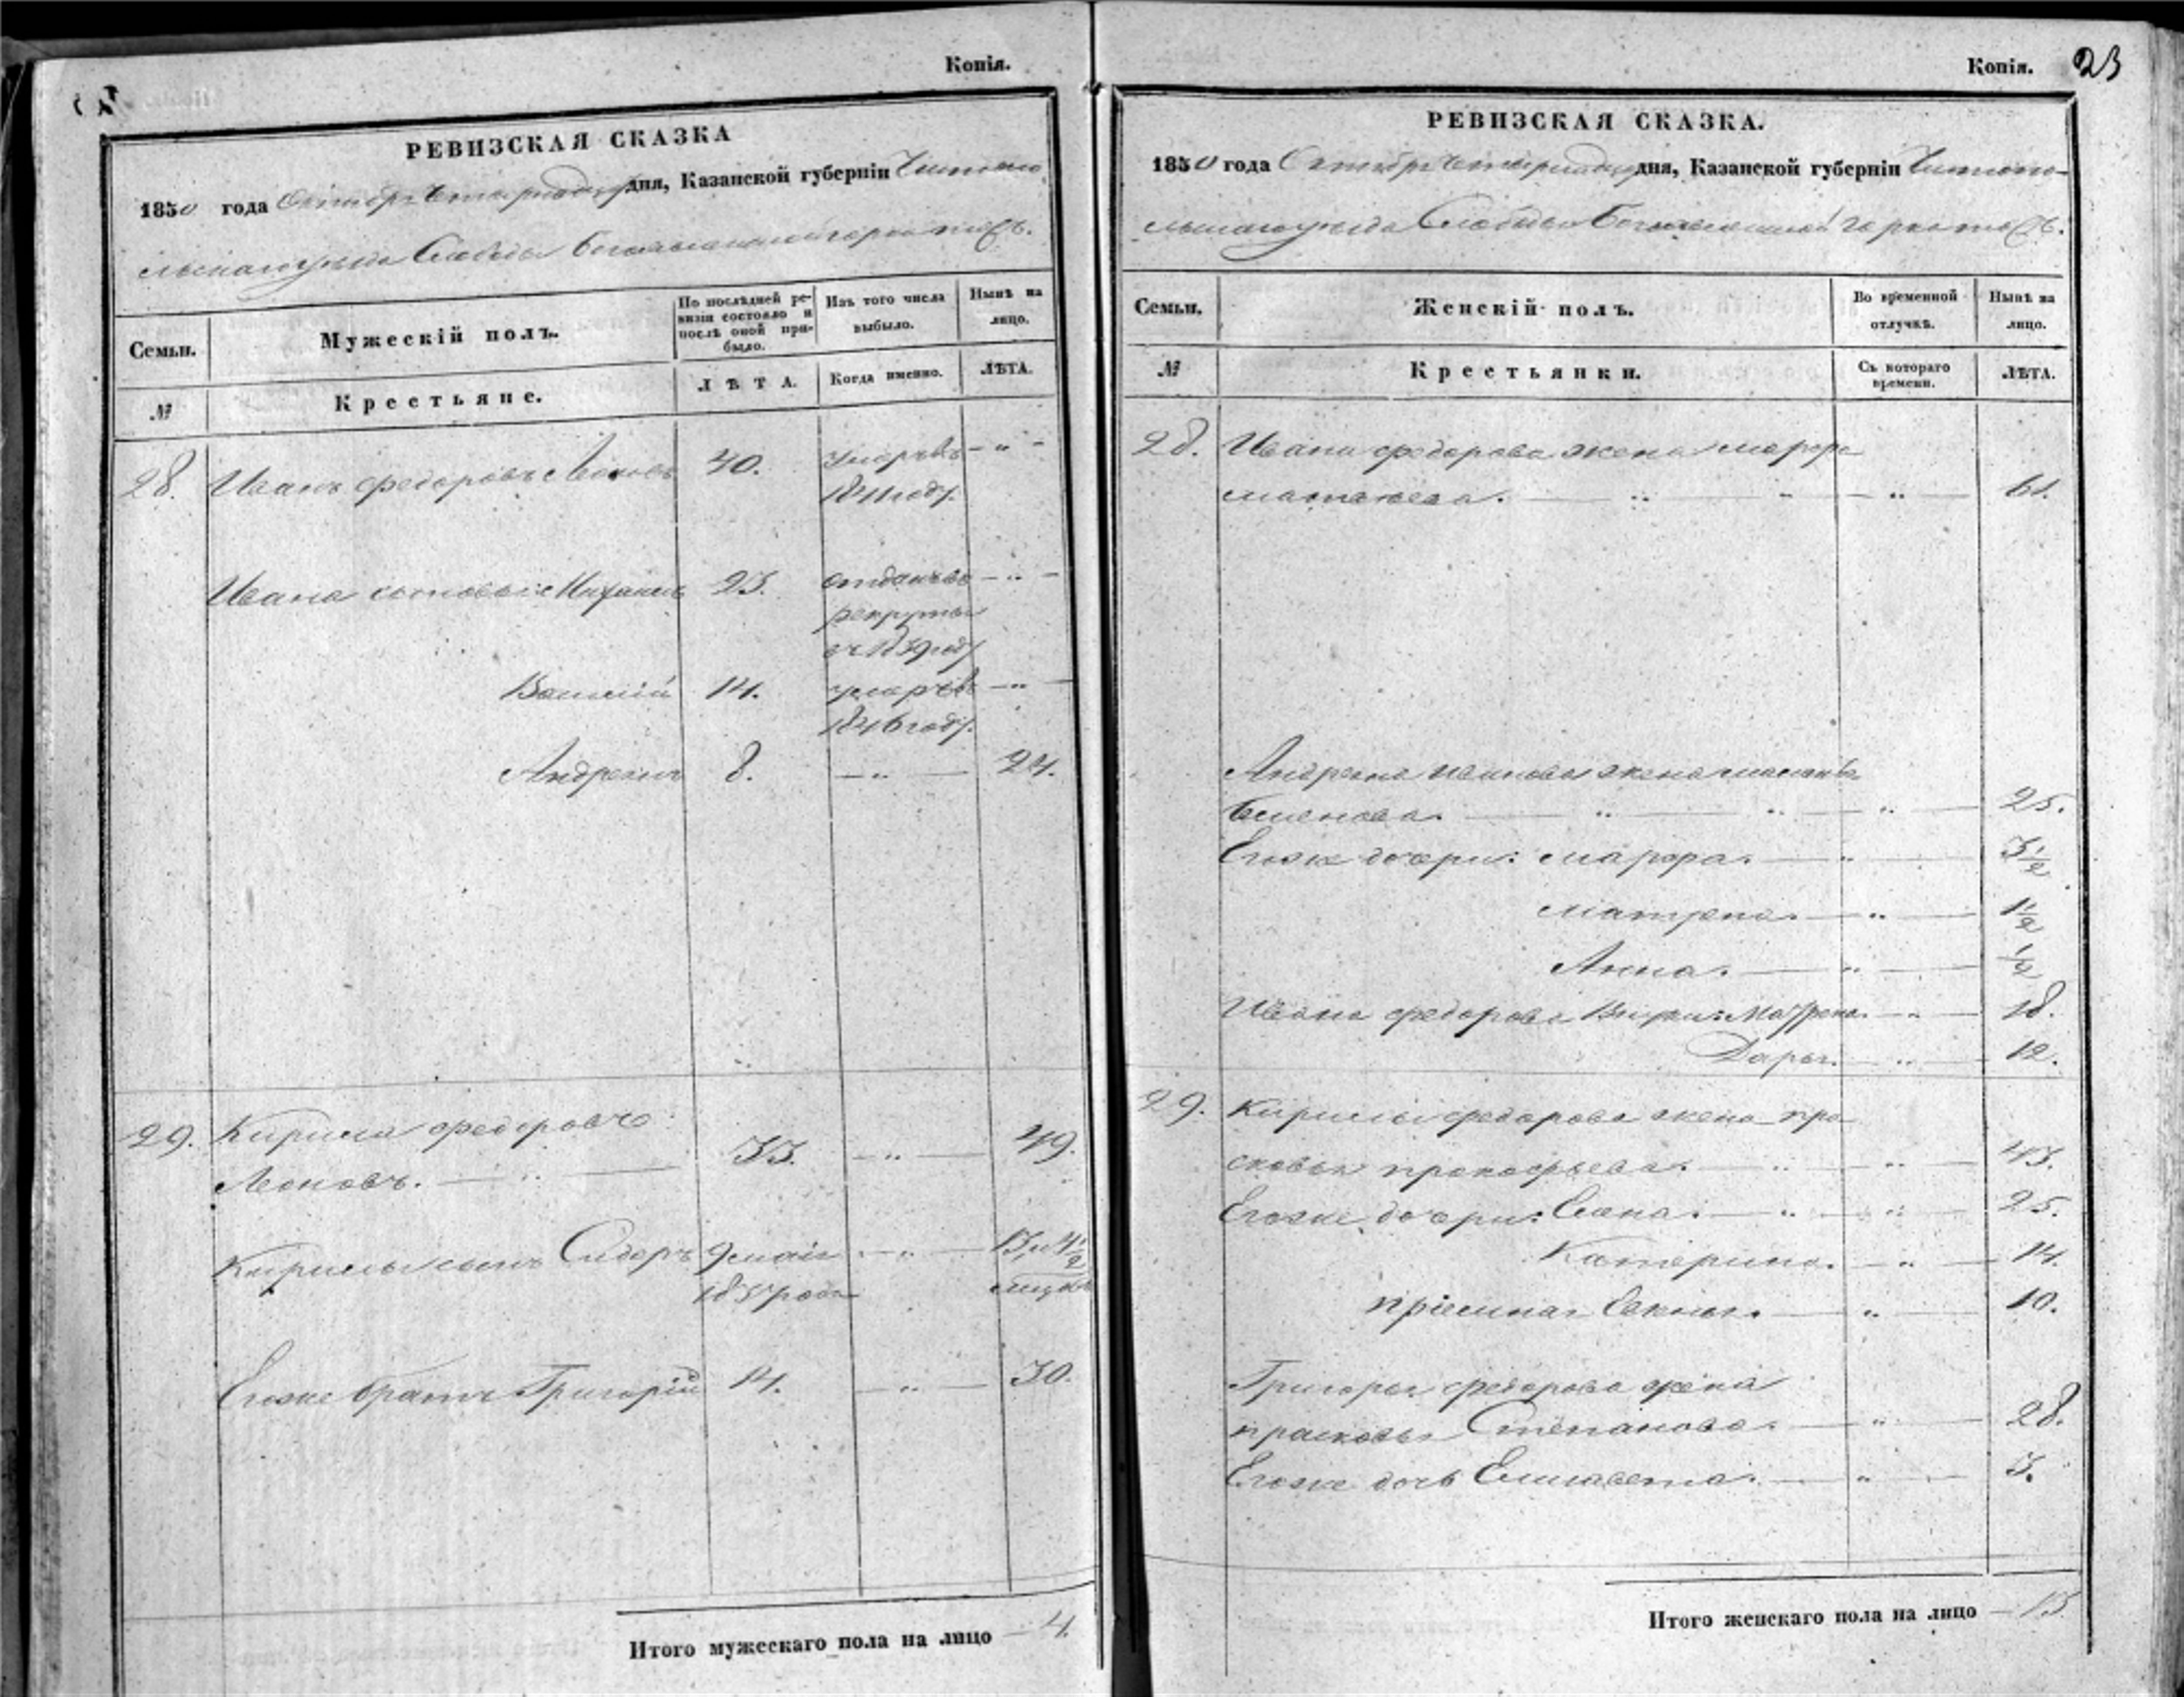 Копія.
РЕВИЗСКАЯ СКАЗКА
1850 года Октября дня, Казанской губерніи Чистопо
льскаго уѣзда Слободы Богоявленской горки тожъ.
Семьи.
Мужескій полъ.
По послѣдней ре-
визіи состояло и
послѣ оной при-
было.
Изъ того числа
выбыло.
Нынѣ на
лицо.
№
Крестьяне.
ЛѢТА.
Когда именно.
ЛѢТА.
28. Иванъ Федоровъ Леоновъ 40. умеръ въ — „ —
1841 году.
Ивана сыновья: Михаилъ 23. отданъ въ — „ —
рекруты
въ 1839 году
Василій 14. умеръ въ — „ —
1846 году.
Андреянъ 8. — „ — 24.
29. Кирила Федоровъ
Леоновъ. — „ — 33. — „ — 49.
Кирилы сынъ Сидоръ 9 маія — „ — 13 и 4½
1837 года
Егоже братъ Григорій 14. — „ — 30.
Итого мужескаго пола на лицо — 4.
Копія. 23
РЕВИЗСКАЯ СКАЗКА.
1850 года Октября дня, Казанской губерніи Чистопо-
льскаго уѣзда Слободы Богоявленской горки тожъ.
Семьи.
Женскій полъ.
Во временной
отлучкѣ.
Нынѣ на
лицо.
№
Крестьянки.
Съ котораго
времени.
ЛѢТА.
28. Ивана Федорова жена Марфа
Матвеева. — „ — „ — „ — 61.
Андреяна Иванова жена
Семенова. — „ — „ — „ — 25.
Егоже дочери: Марфа. — „ — 3½
Матрена. — „ — 1½
Анна. — „ — ½
Ивана Федорова Внуки: Матрена. — „ — 18.
Дарья. — „ — 12.
29. Кирилы Федорова жена Пра
сковья Прокофьева. „ — „ — 43.
Егоже дочери: Елена. — „ — „ — 25.
Катерина. — „ — 14.
пріемная — „ — 10.
Григорья Федорова жена
Прасковья Степанова. — „ — 28.
Егоже дочь Елисавета. — „ — 3.
Итого женскаго пола на лицо — 13.